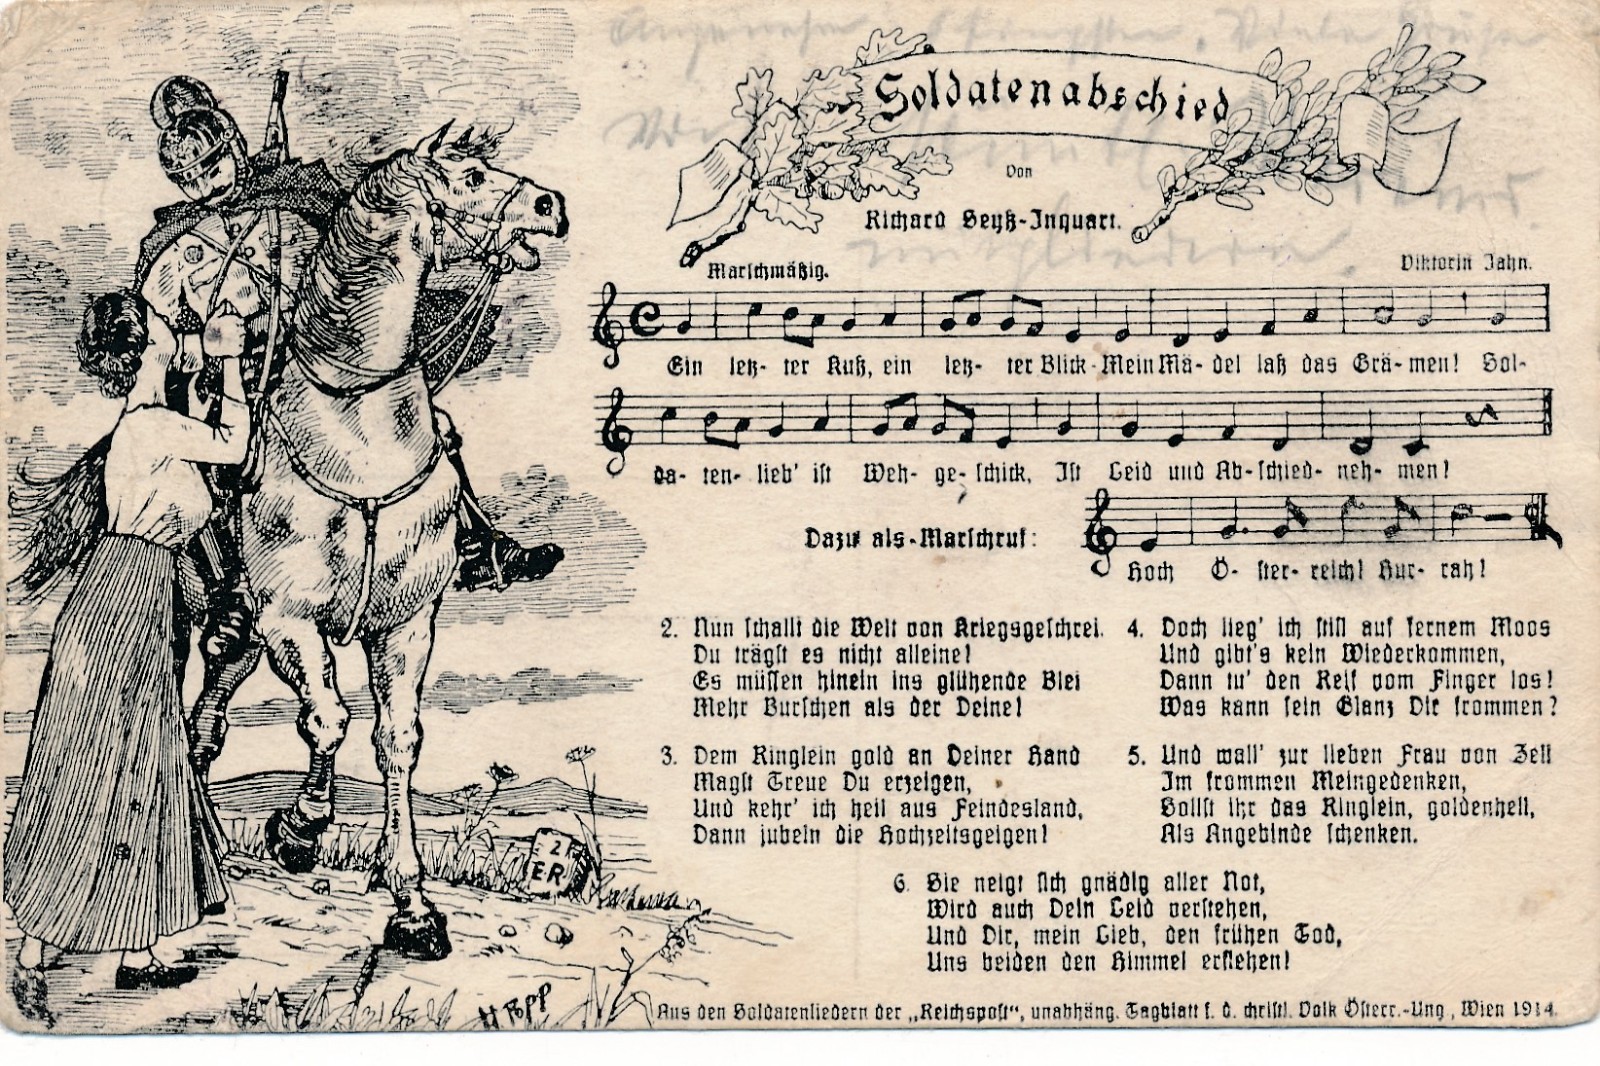 Soldatenabschied
Von
Richard Seyß-Inquart.
Marschmäßig.
Viktorin Jahn.
Ein letz- ter Kuß, ein letz- ter Blick - Mein Mä- del laß das Grä- men! Sol-
da- ten- lieb' ist Weh- ge- schick, Ist Leid und Ab- schied- neh- men!
Dazu als Marschruf:
Hoch Ö- ster- reich! Hur- rah!
2. Nun schallt die Welt von Kriegsgeschrei.
Du trägst es nicht alleine!
Es müssen hinein ins glühende Blei
Mehr Burschen als der Deine!
3. Dem Ringlein gold an Deiner Hand
Magst Treue Du erzeigen,
Und kehr' ich heil aus Feindesland,
Dann jubeln die Hochzeitsgeigen!
4. Doch lieg' ich still auf fernem Moos
Und gibt's kein Wiederkommen,
Dann tu' den Reif vom Finger los!
Was kann sein Glanz Dir frommen?
5. Und wall' zur lieben Frau von Zell
Im frommen Meingedenken,
Sollst ihr das Ringlein, goldenhell,
Als Angebinde schenken.
6. Sie neigt sich gnädig aller Not,
Wird auch Dein Leid verstehen,
Und Dir, mein Lieb, den frühen Tod,
Uns beiden den Himmel erflehen!
2
ER
H Popp
Aus den Soldatenliedern der „Reichspost", unabhäng. Tagblatt f. d. christl. Volk Österr.-Ung., Wien 1914.